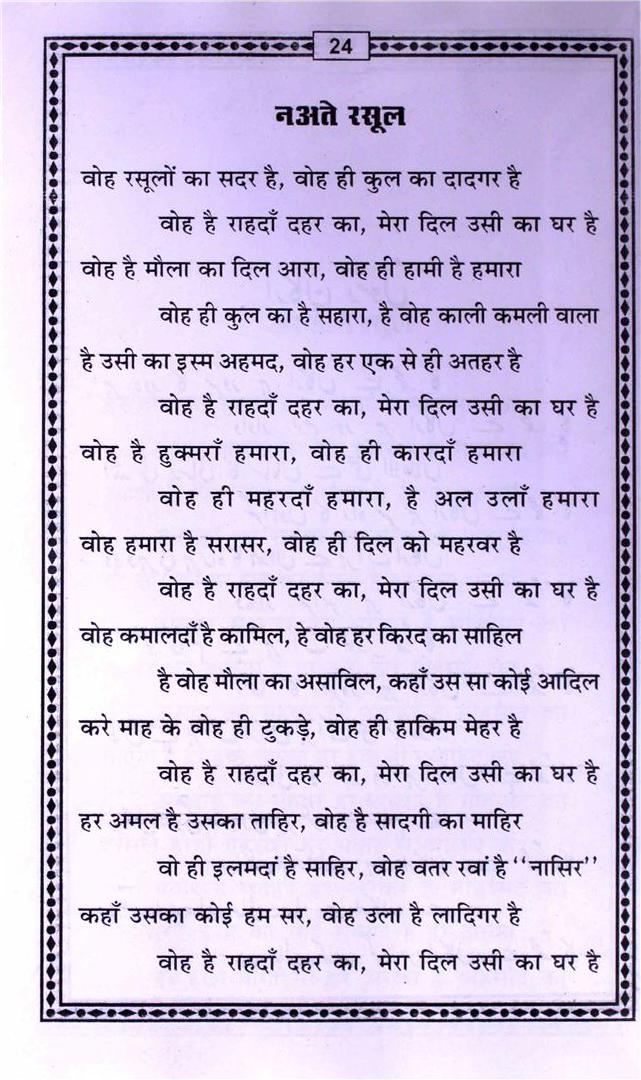 24
नअते रसूल
वोह रसूलों का सदर है, वोह ही कुल का दादगर है
वोह है राहदाँ दहर का, मेरा दिल उसी का घर है
वोह है मौला का दिल आरा, वोह ही हामी है हमारा
वोह ही कुल का है सहारा, है वोह काली कमली वाला
है उसी का इस्म अहमद, वोह हर एक से ही अतहर है
वोह है राहदाँ दहर का, मेरा दिल उसी का घर है
वोह है हुक्मराँ हमारा, वोह ही कारदाँ हमारा
वोह ही महरदाँ हमारा, है अल उलाँ हमारा
वोह हमारा है सरासर, वोह ही दिल को महरवर है
वोह है राहदाँ दहर का, मेरा दिल उसी का घर है
वोह कमालदाँ है कामिल, हे वोह हर किरद का साहिल
है वोह मौला का असाविल, कहाँ उस सा कोई आदिल
करे माह के वोह ही टुकड़े, वोह ही हाकिम मेहर है
वोह है राहदाँ दहर का, मेरा दिल उसी का घर है
हर अमल है उसका ताहिर, वोह है सादगी का माहिर
वो ही इलमदां है साहिर, वोह वतर रवां है ‘‘नासिर’’
कहाँ उसका कोई हम सर, वोह उला है लादिगर है
वोह है राहदाँ दहर का, मेरा दिल उसी का घर है